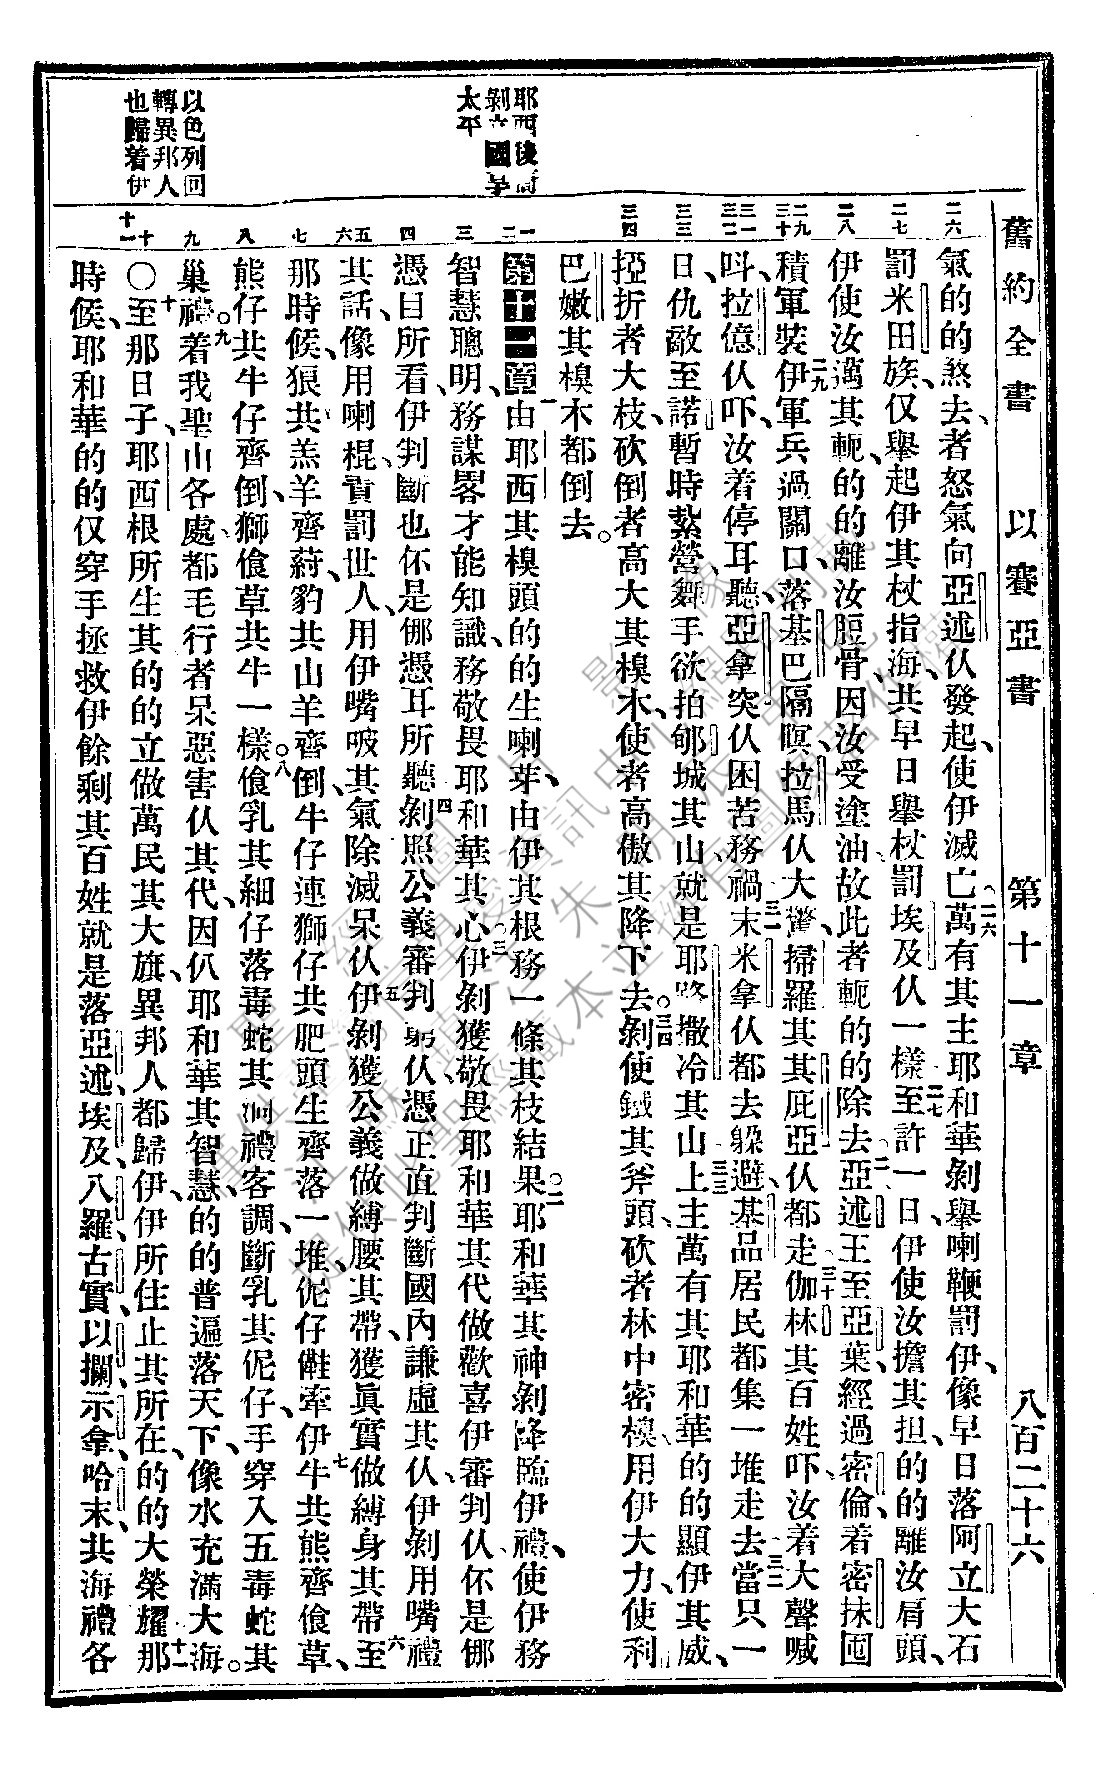 舊約全書 以賽亞書 第十一章 八百二十六
氣的的煞去者怒氣向亞述仈發起、使伊滅亡。二六萬有其主耶和華剝舉喇鞭罰伊、像早日落阿立大石
罰米田族、仅舉起伊其杖指海、共早日舉杖罰埃及仈一樣、二七至許一日、伊使汝擔其担、的的離汝肩頭、
伊使汝邁其軛、的的離汝脰骨、因汝受塗油、故此者軛的的除去。二八亞述王至亞葉、經過密倫、着密抹囤
積軍裝、二九伊軍兵過關口、落基巴隔暝、拉馬仈大驚、掃羅其其庇亞仈都走、三十伽林其百姓吓、汝着大聲喊
呌、拉億仈吓、汝着停耳聽、亞拿突仈困苦務禍、三一末米拿仈都去躲避、基品居民都集一堆走去、三二當只一
日、仇敵至諾、暫時紮營、舞手欲拍郇城其山、就是耶路撒冷其山上、三三主萬有其耶和華的的顯伊其威、
掗折者大枝、砍倒者高大其樉木、使者高傲其降下去。三四剝使鐵其斧頭、砍者林中密樉、用伊大力、使利
巴嫩其樉木都倒去。
第十一章 一由耶西其樉頭的的生喇芽、由伊其根務一條其枝結果。二耶和華其神剝降臨伊禮、使伊務
智慧聰明、務謀畧才能知識、務敬畏耶和華其心、三伊剝獲敬畏耶和華其代做歡喜、伊審判仈伓是㑚
憑目所看、伊判斷也伓是㑚憑耳所聽、四剝照公義審判窮仈、憑正直判斷國內謙虛其仈、伊剝用嘴禮
其話、像用喇棍、責罰世人、用伊嘴㕭其氣除滅呆仈、五伊剝獲公義做縛腰其帶、獲眞實做縛身其帶、六至
那時候、狼共羔羊齊蒔、豹共山羊齊倒、牛仔連獅仔共肥頭生齊落一堆、伲仔儺牽伊、七牛共熊齊飡草、
熊仔共牛仔齊倒、獅飡草共牛一樣。八飡乳其細仔落毒蛇其洞禮客調、斷乳其伲仔、手穿入五毒蛇其
巢禮。九着我聖山各處、都毛行者呆惡害仈其代、因仈耶和華其智慧、的的普遍落天下、像水充滿大海。
〇十至那日子、耶西根所生其、的的立做萬民其大旗、異邦人都歸伊、伊所住止其所在、的的大榮耀、十一那
時候、耶和華的的仅穿手拯救伊餘剩其百姓、就是落亞述、埃及、八羅、古實、以攔、示拿、哈末、共海禮各
耶西後裔
剝立國享
太平
以色列回
轉異邦人
也歸着伊